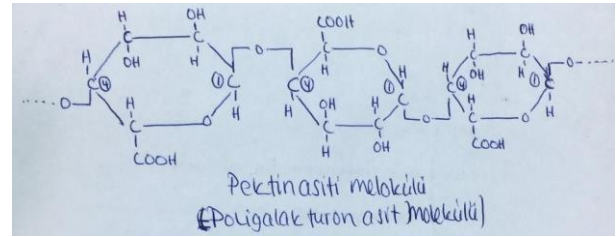 H OH COOH H OH
H C C H O C O H C C H
H OH H H H OH H
C 4 1 C O C 4 1 C C 4 1 C O
O H OH H
H C O H C C H H C O
COOH H OH COOH
Pektinasiti melokülü
(Poligalakturon asit molekülü)